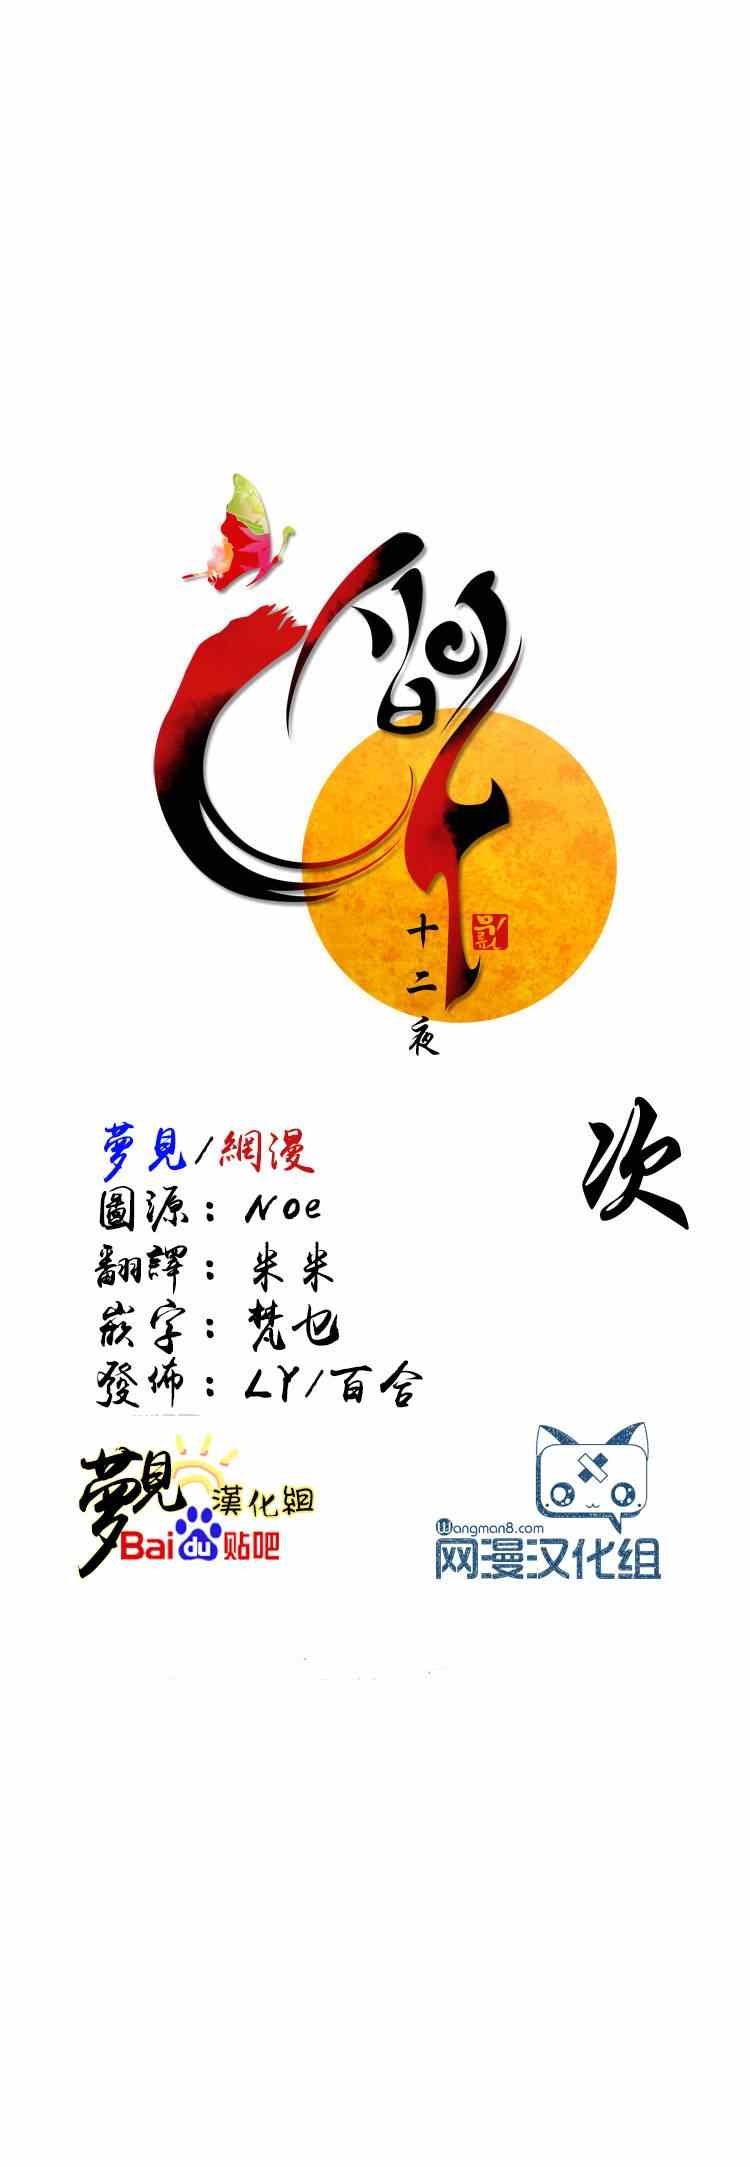 十二夜
次
夢見/網漫
圖源：Noe
翻譯：米米
嵌字：梵乜
發佈：LY/百合
夢見漢化組
Bai du 贴吧
Wangman8.com
网漫汉化组